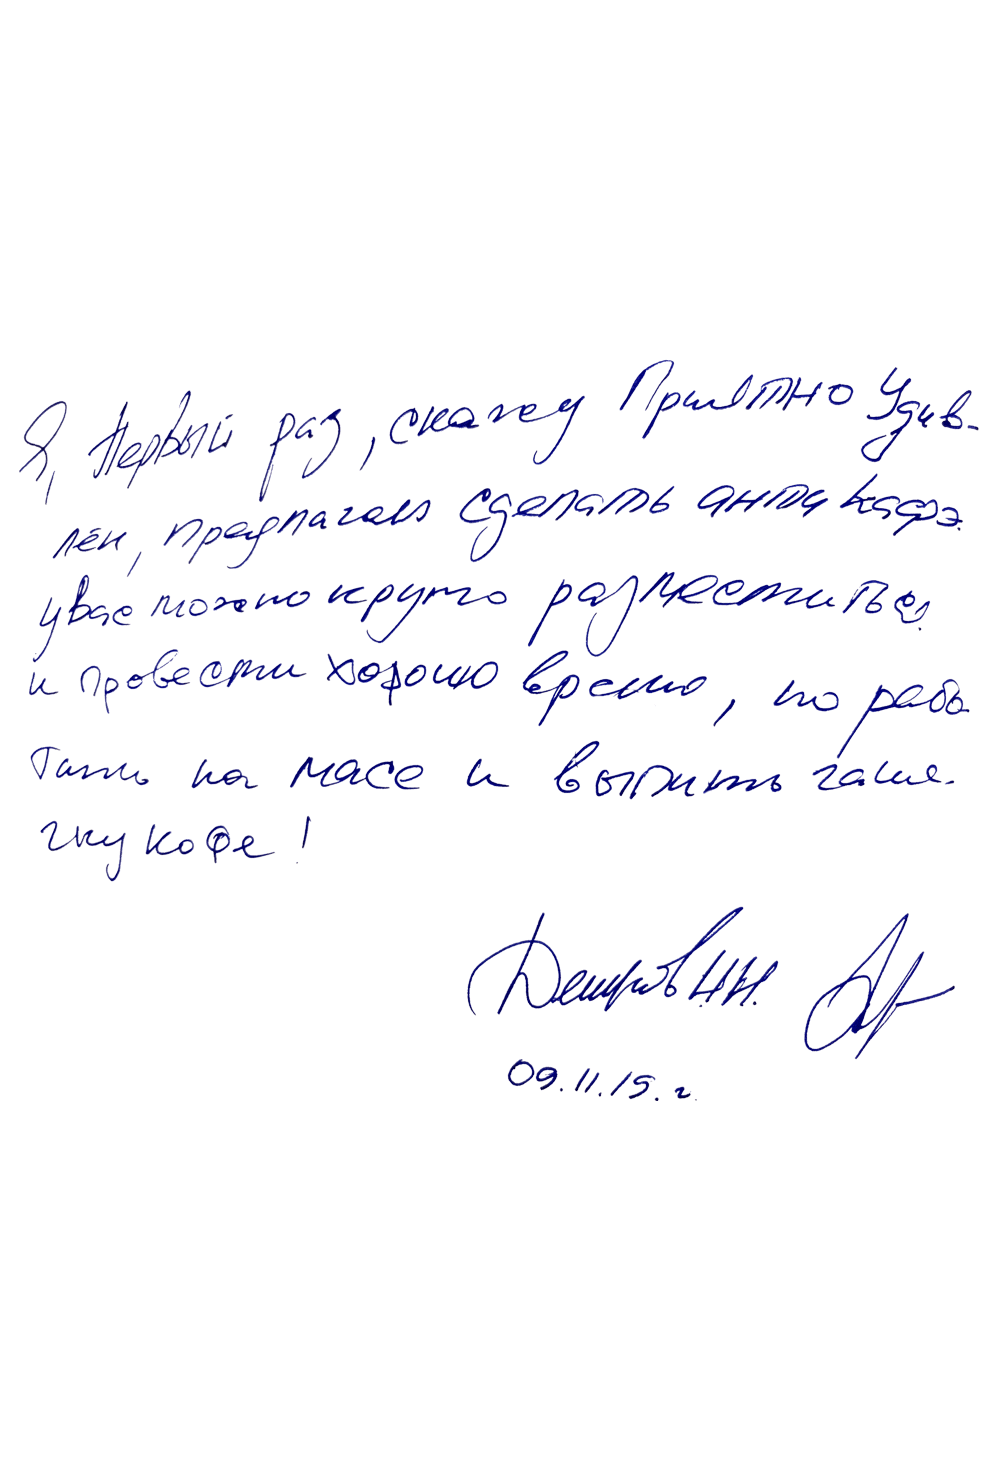 Я, Первый раз, скажу Приятно Удив-
лен, предлагаю сделать анти кафэ.
у вас можно круто разместиться.
и провести хорошо время, по рабо
тать на масе и выпить чаше-
чку кофе!
Н.Н.
09.11.15.г.